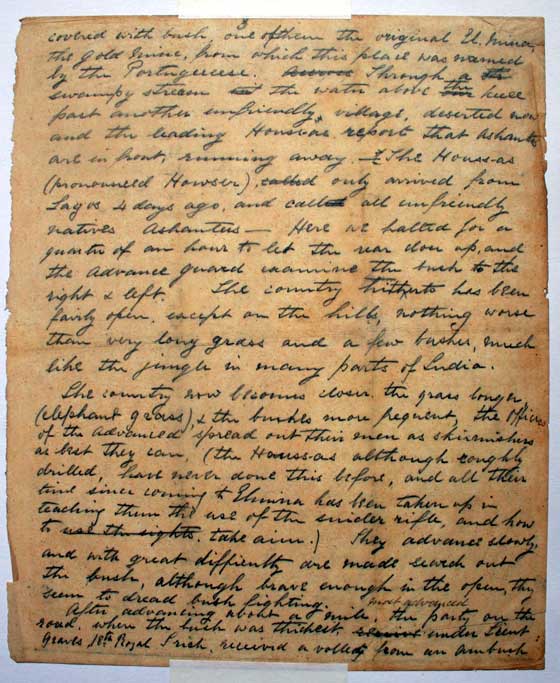 8
covered with bush, one of them the original El Mina,
the gold mine, from which this place was named
by the Portuguese. Through a
swampy stream the water above the knee
past another unfriendly village, deserted now
and the leading Houssas report that Ashantis
are in front, running away. The Houssas
(pronounced Howser), called only arrived from
Lagos 4 days ago, and call all unfriendly
natives Ashantees — Here we halted for a
quarter of an hour to let the rear close up, and
the advance guard examine the bush to the
right & left. The country hitherto has been
fairly open, except on the hills, nothing worse
than very long grass and a few bushes, much
like the jungle in many parts of India.
The country now becomes closer. the grass longer
(elephant grass), & the bushes more frequent, the Officers
of the advanced spread out their men as skirmishers
as best they can, (the Houssas although roughly
drilled, have never done this before, and all their
time since coming to Elmina has been taken up in
teaching them the use of the snider rifle, and how
to use the sights. take aim.) They advance slowly,
and with great difficulty are made search out
the bush, although brave enough in the open, they
seem to dread bush fighting.
most advanced
After advancing about a mile, the party on the
road, where the bush was thickest, under Lieut
Graves 18th Royal Irish, received a volley from an ambush